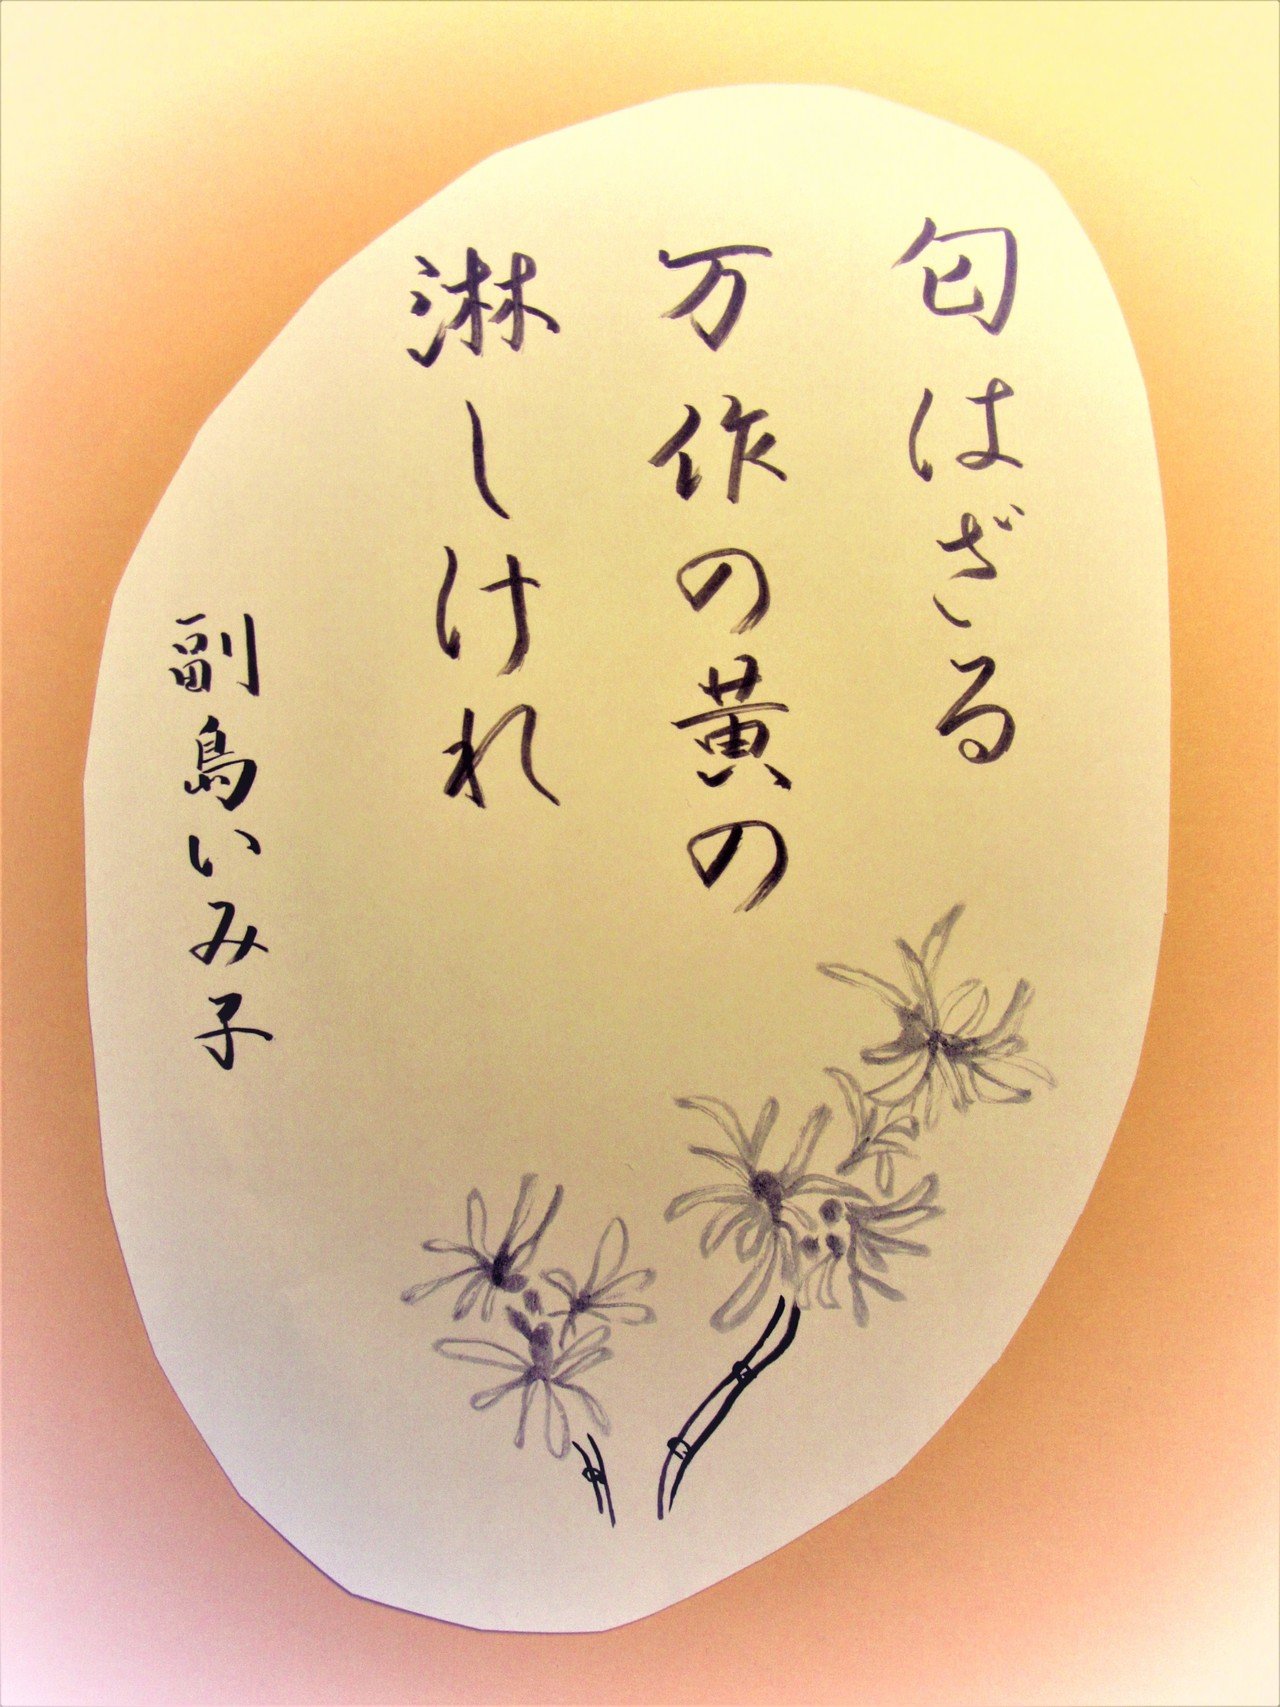 匂はざる
万作の黄の
淋しけれ
副島いみ子